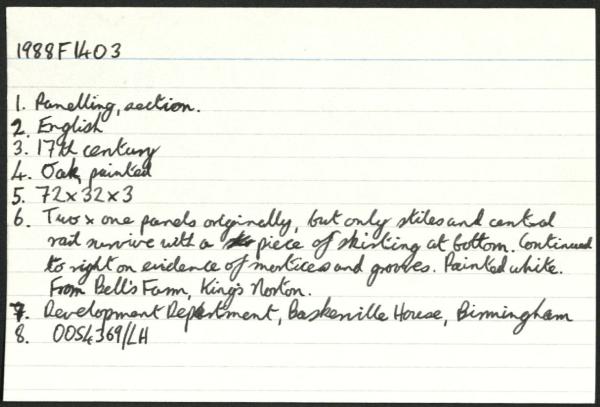 1988F1403
1. Panelling, section.
2. English
3. 17th century
4. Oak, painted
5. 72 x 32 x 3
6. Two x one panels originally, but only stiles and central
rail survive with a piece of skirting at bottom. Continued
to right on evidence of mortices and grooves. Painted white.
From Bell's Farm, King's Norton.
7. Development Department, Baskerville House, Birmingham
8. 0054369/LH